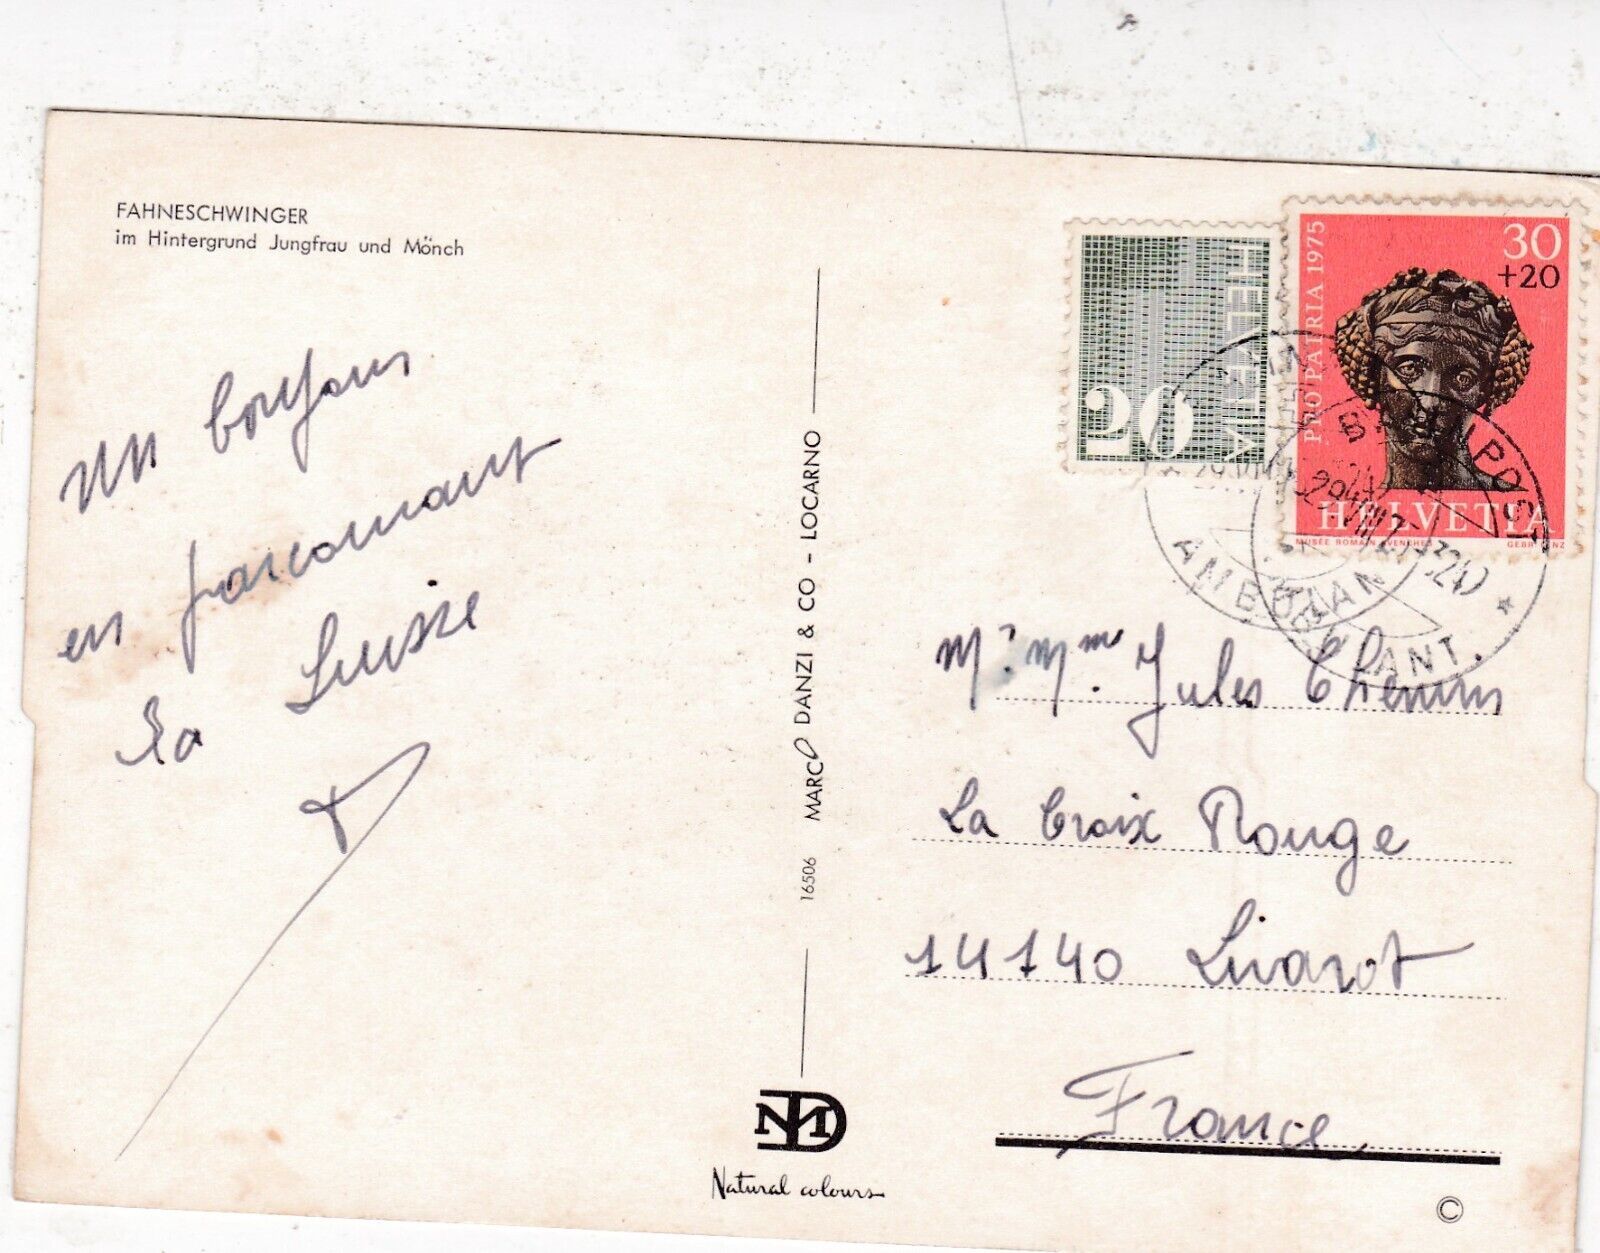 FAHNESCHWINGER
im Hintergrund Jungfrau und Mönch
Un bonjour
en parcourant
la Suisse
16506 MARCO DANZI & CO - LOCARNO
HELVETIA
20
PRO PATRIA 1975
30
+20
HELVETIA
MUSÉE ROMAIN AVENCHES
AMBULANT
AMBULANT
Mr. Mme. Jules Chemin
La Croix Rouge
14140 Livarot
France
MD
Natural colours
©